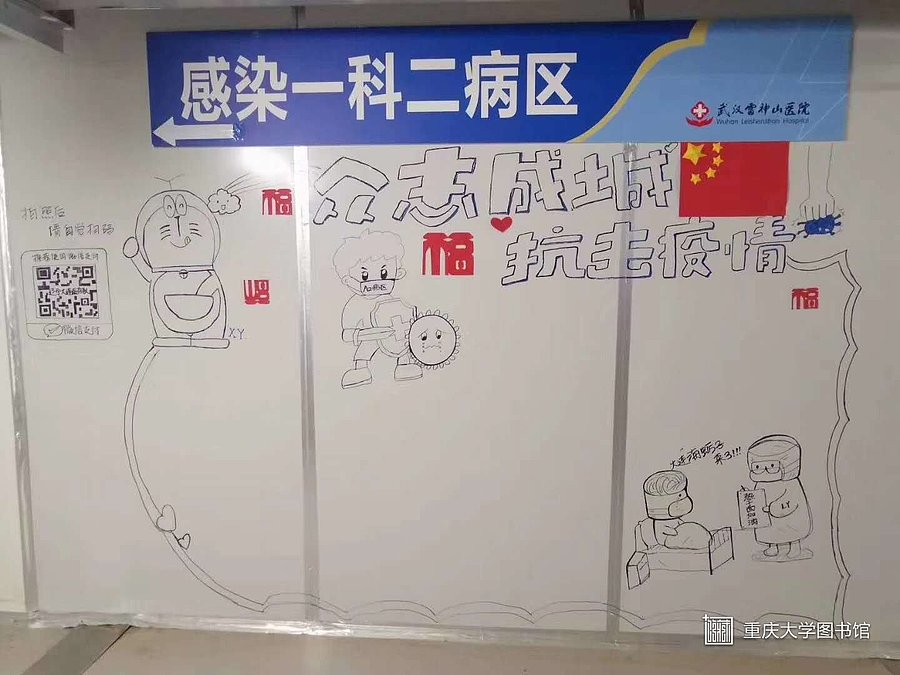 感染一科二病区
武汉雷神山医院
Wuhan Leishenshan Hospital
众志成城
抗击疫情
福
福
福
拍照后
请自觉扫码
推荐使用微信支付
微信支付
X.Y
加油
LY
来了!!!
重庆大学图书馆